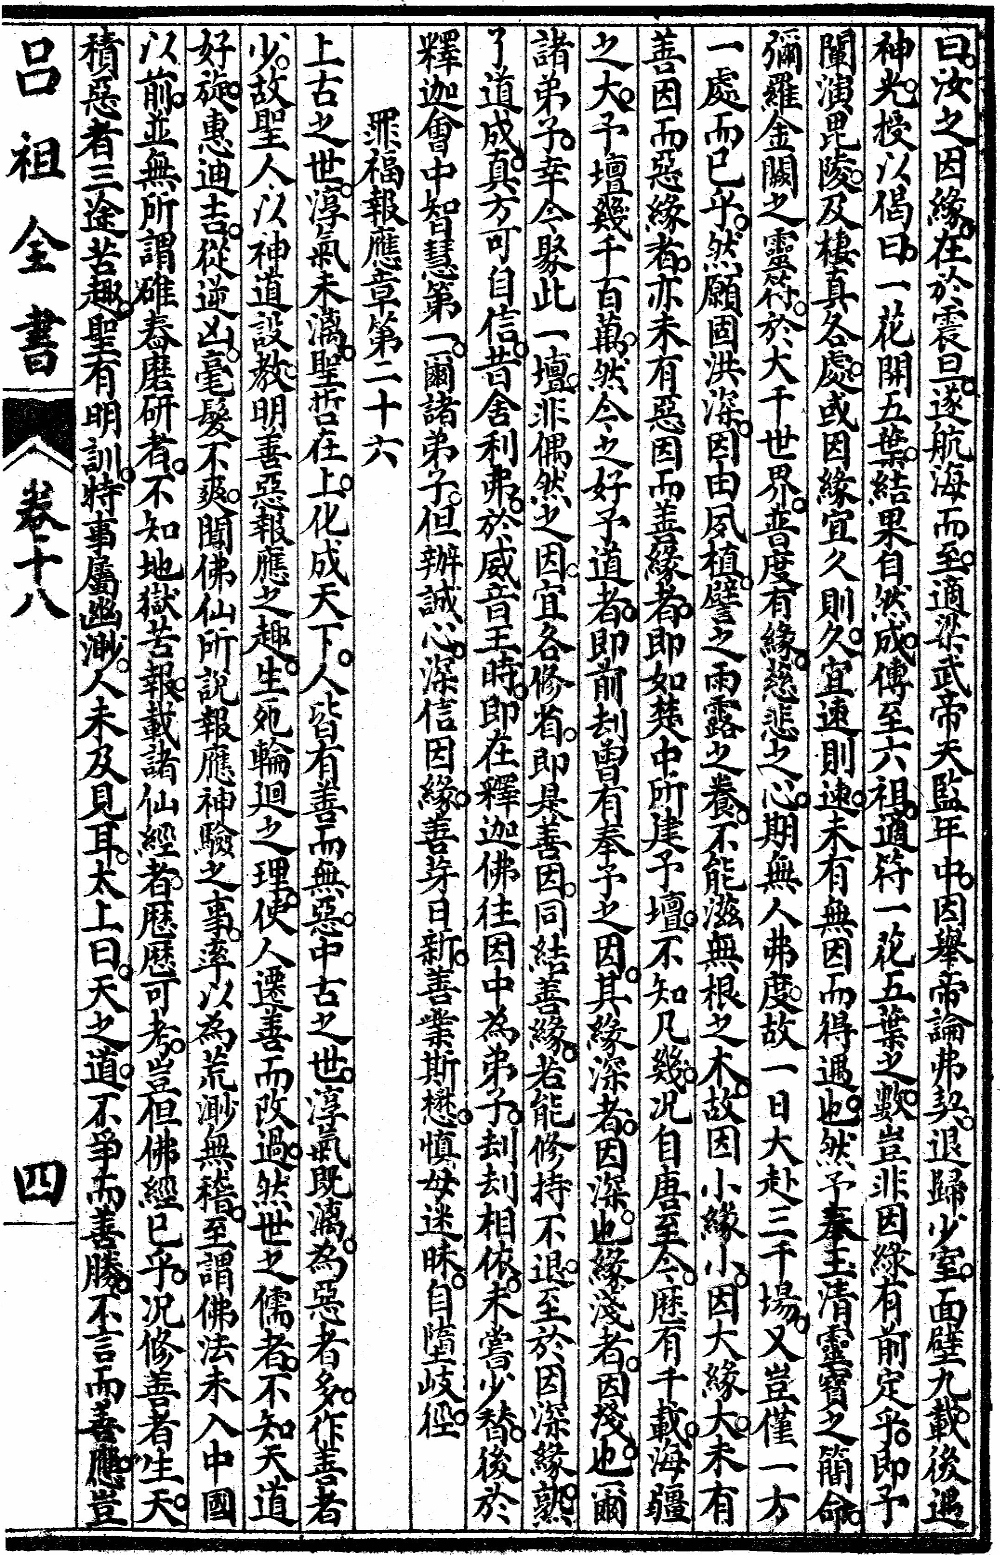 曰。汝之因緣。在於震旦。遂航海而至。適梁武帝天監年中。因舉帝論弗契。退歸少室。面壁九載。後遇
神光。授以偈曰。一花開五葉。結果自然成。傳至六祖。適符一花五葉之數。豈非因緣有前定乎。即予
闡演毘陵。及棲真各處。或因緣宜久則久。宜速則速。未有無因而得遇也。然予奉玉清靈寶之簡命。
彌羅金闕之靈符。於大千世界。普度有緣。慈悲之心。期無人弗度。故一日大赴三千場。又豈僅一方
一處而已乎。然願固洪深。因由夙植。譬之雨露之養。不能滋無根之木。故因小緣小。因大緣大。未有
善因而惡緣者。亦未有惡因而善緣者。即如楚中所建予壇。不知凡幾。况自唐至今。歷有千載。海疆
之大。予壇幾千百萬。然今之好予道者。即前刦曾有奉予之因。其緣深者。因深也。緣淺者。因淺也。爾
諸弟子。幸今聚此一壇。非偶然之因。宜各修省。即是善因。同結善緣。若能修持不退。至於因深緣熟。
了道成真。方可自信。昔舍利弗。於威音王時。即在釋迦佛往因中為弟子。刦刦相依。未嘗少替。後於
釋迦會中智慧第一。爾諸弟子。但辦誠心。深信因緣。善芽日新。善業斯懋。慎毋迷昧。自墮岐徑。
罪福報應章第二十六
上古之世。淳氣未漓。聖哲在上。化成天下。人皆有善而無惡。中古之世。淳氣既漓。為惡者多。作善者
少。故聖人以神道設教。明善惡報應之趣。生死輪迴之理。使人遷善而改過。然世之儒者。不知天道
好旋。惠迪吉。從逆凶。毫髮不爽。聞佛仙所說報應神驗之事。率以為荒渺無稽。至謂佛法未入中國
以前。並無所謂碓舂磨研者。不知地獄苦報。載諸仙經者。歷歷可考。豈但佛經已乎。况修善者生天。
積惡者三途苦趣。聖有明訓。特事屬幽渺。人未及見耳。太上曰。天之道。不爭而善勝。不言而善應。豈
呂祖全書
卷二十八
四